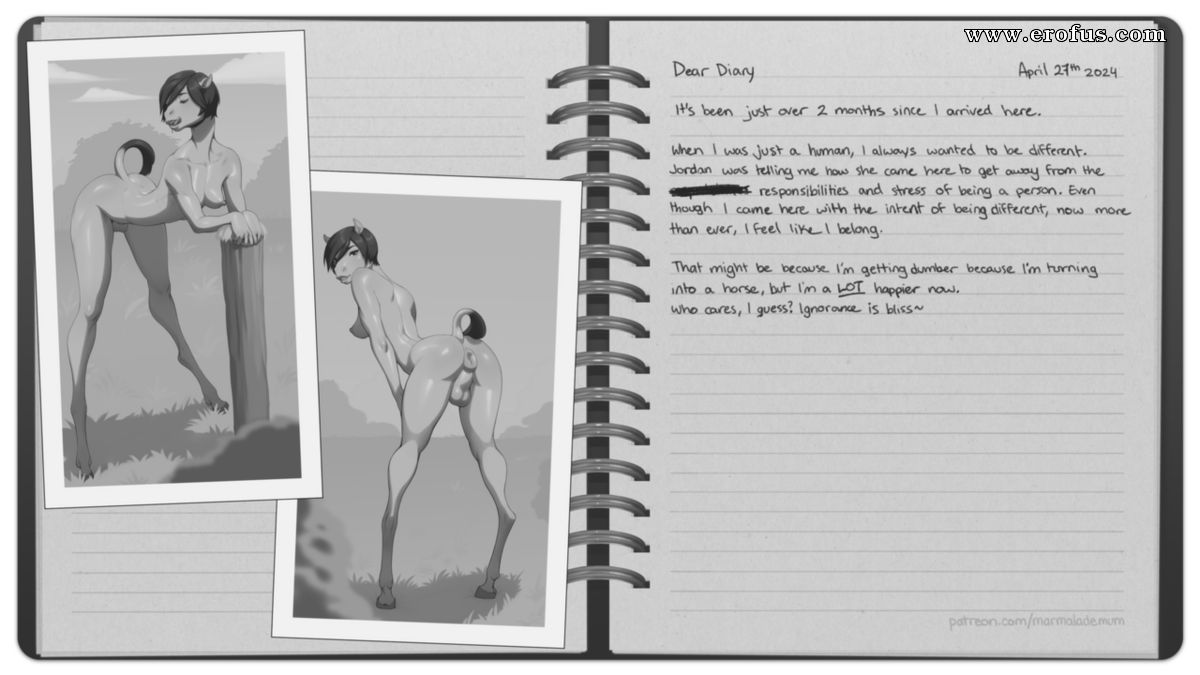 www.erofus.com
Dear Diary
April 27th 2024
It's been just over 2 months since I arrived here.
When I was just a human, I always wanted to be different.
Jordan was telling me how she came here to get away from the
responsibilities and stress of being a person. Even
though I came here with the intent of being different, now more
than ever, I feel like I belong.
That might be because I'm getting dumber because I'm turning
into a horse, but I'm a LOT happier now.
Who cares, I guess? Ignorance is bliss~
patreon.com/marmalademum